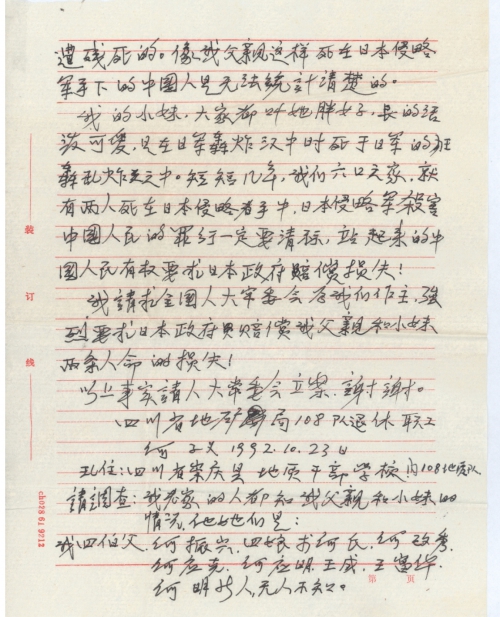 遭残死的。像我父親这样死在日本侵略
军手下的中國人是无法統計請楚的。
我的小妹，大家都叫她胖女子，長的活
泼可愛，是在日军轰炸汉中时死于日军的狂
轰乱炸之中。短短几年，我们六口之家，就
有两人死在日本侵略者手中，日本侵略军殺害
中國人民的罪行一定要清祘，站起来的中
國人民有权要求日本政府賠償損失！
我請求全國人大常委会为我们作主，強
烈要求日本政府賠償我父親和小妹
两条人命的損失！
以上事实請人大常委会立案，謝謝。
四川省地矿局108队退休职工
何 1992.10.23日
現住：四川省崇庆县地质干部学校内108地质队
請調查：我老家的人都知我父親和小妹的
情况，他她们是：
我四伯父何振兴，四娘 何氏，何政秀
何应克，何应明，王成，王富华
何明 人，无人不知。
装
订
线
ch028.61.9212
第 页